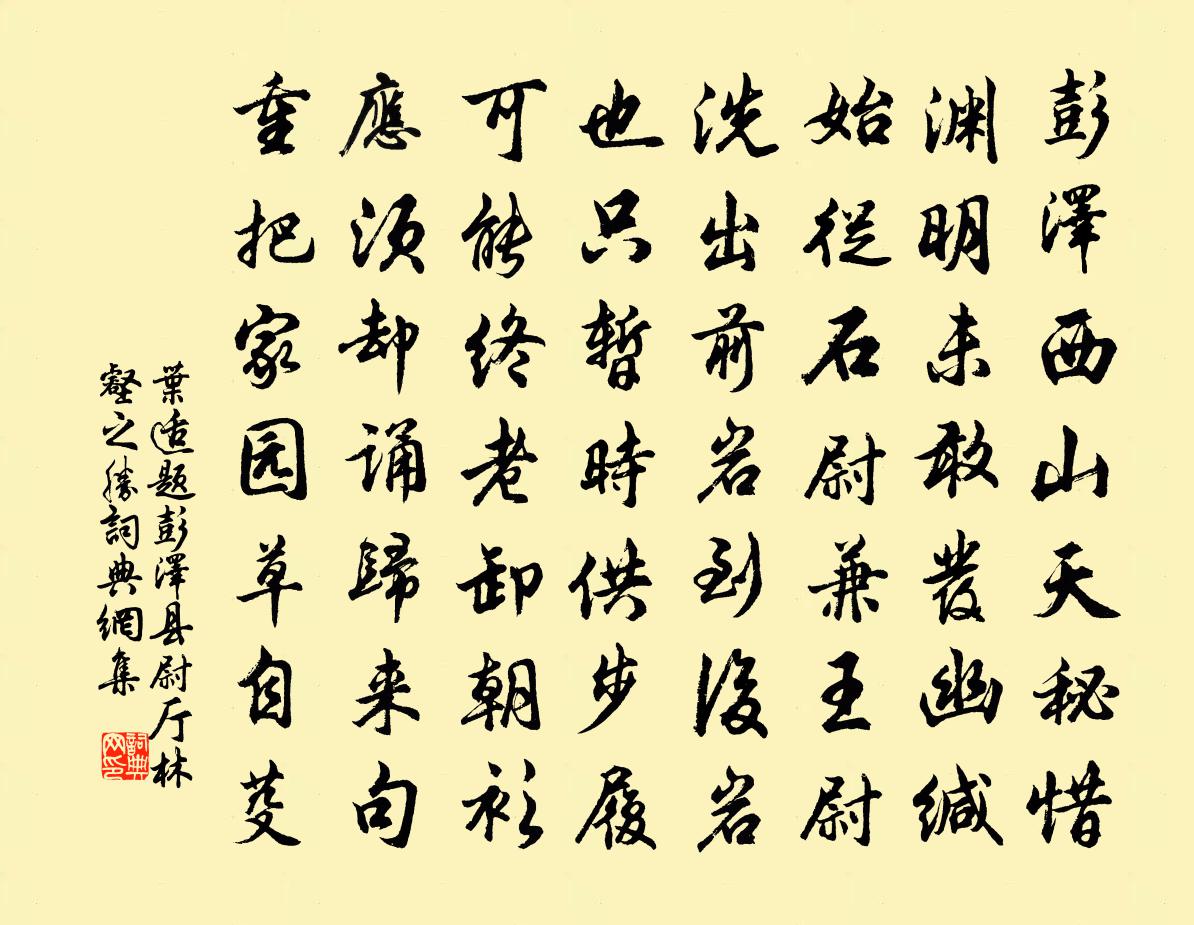 彭澤西山天秘惜
渊明未敢發幽缄
始從石尉兼王尉
洗出前岩到後岩
也只暫時供步履
可能终老卸朝衫
應须却诵歸来句
重把家园草自芟
葉适题彭澤县尉厅林
壑之勝詞典網集
詞典
网印